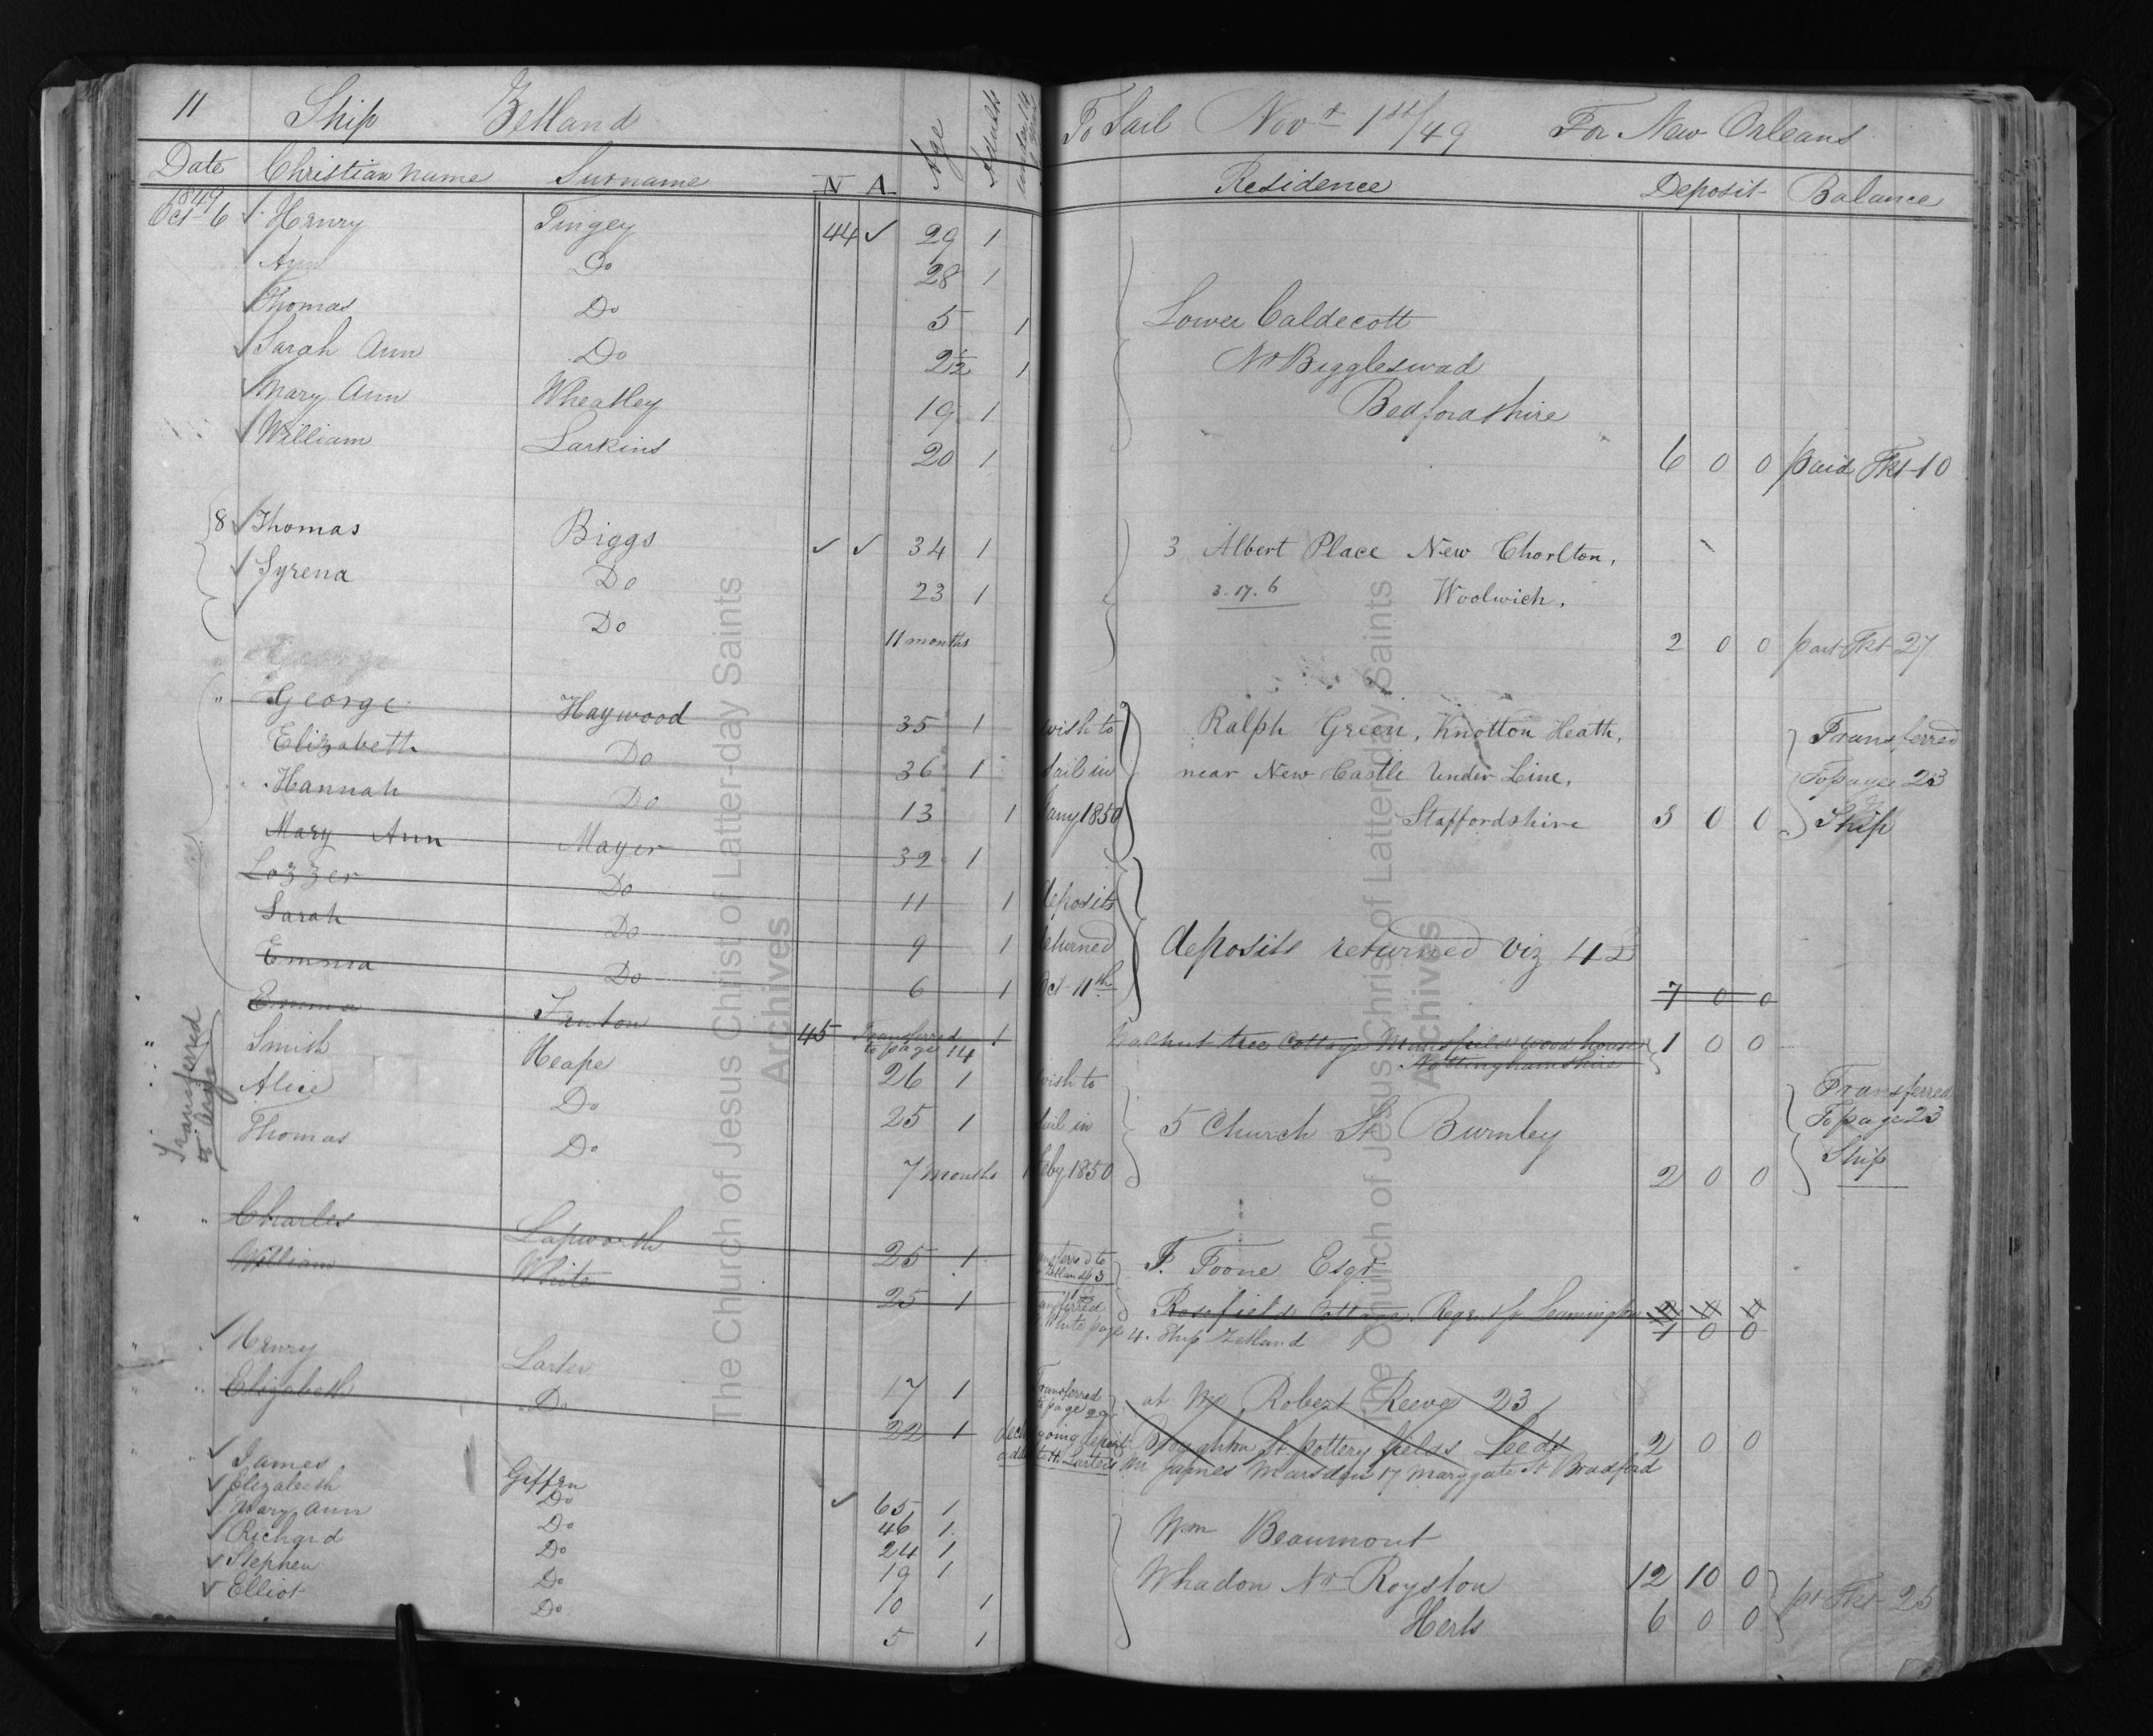 11 Ship Zetland To Sail Novr 1st/49 For New Orleans
Date Christian name Surname N A Age Adults Residence Deposit Balance
1849
Oct 6 Henry Tingey 44 ✓ 29 1
Ann Do 28 1
Thomas Do 5 1 Lower Caldecott
Sarah Ann Do 2½ 1 Nr Biggleswad
Mary Ann Wheatley 19 1 Bedfordshire
William Larkins 20 1 6 0 0 paid Tkt 10
8 Thomas Biggs ✓ ✓ 34 1 3 Albert Place New Chorlton,
Syrena Do 23 1 3.17.6 Woolwich.
Do 11 months 2 0 0 part Tkt 27
George
" George Haywood 35 1 wish to Ralph Green, Knotton Heath, Transferred
Elizabeth Do 36 1 sail in near New Castle Under Line, To page 23
Hannah Do 13 1 Jany 1850 Staffordshire 3 0 0 Ship
Mary Ann Mayer 32 1
Lozzer Do 11 1 deposits
Sarah Do 9 1 returned deposits returned viz 4£
Emma Do 6 1 Oct 11th 7 0 0
Emma Fenton 45 Transferred to page 14 1 Walnut tree Cottage Mansfield wood house 1 0 0
Nottinghamshire
Transferred to large
Smith Heape 26 1 wish to Transferred
Alice Do 25 1 sail in 5 Church St Burnley To page 23
Thomas Do 7 months 1 Feby 1850 2 0 0 Ship
" " Charles Lapworth 25 1 F. Toone Esqr
William White 25 1 Rosefield Cottage. Regent Leamington
Transferred White page 4. Ship Zetland 1 0 0
Henry Larter 17 1 Transferred to page 29 at Mr Robert Reeve 23
Elizabeth Do 22 1 going deposit St. pottery fields Leeds 2 0 0
added to H. Larters Mr James Marsden 17 Marygate St Bradford
James Geffen ✓ 65 1
Elizabeth Do 46 1 Wm Beaumont
Mary Ann Do 24 1
Richard Do 19 1 Whadon Nr Royston 12 10 0
Stephen Do 10 1 Herts 6 0 0 pt Tkt 25
Elliot Do 5 1
The Church of Jesus Christ of Latter-day Saints
Archives
The Church of Jesus Christ of Latter-day Saints
Archives